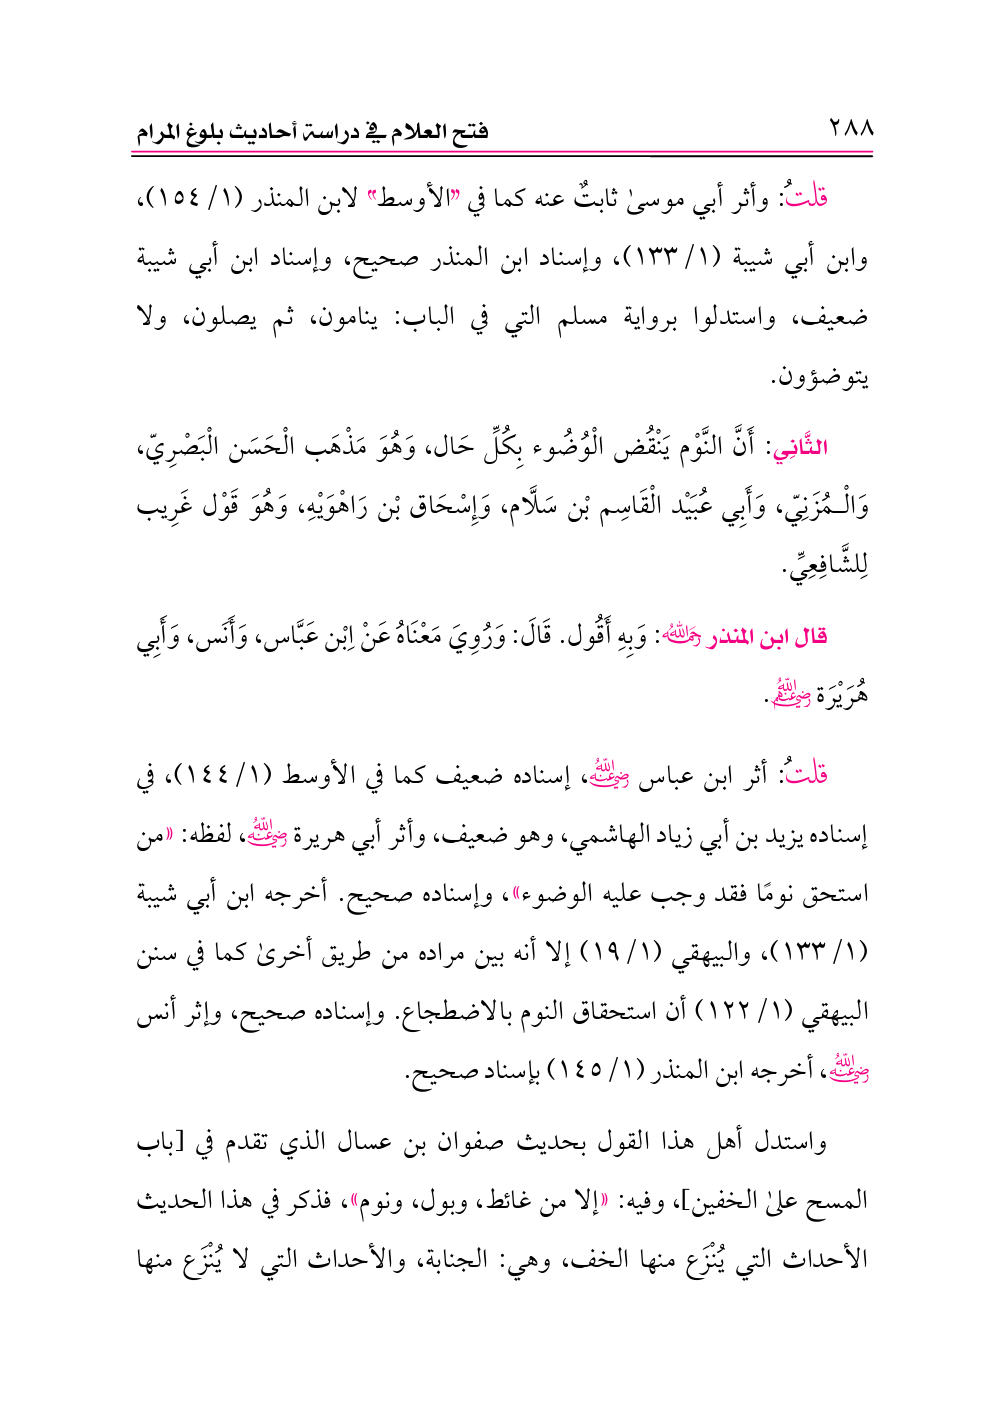 ٢٨٨ فتح العلام في دراسة أحاديث بلوغ المرام
قلتُ: وأثر أبي موسىٰ ثابتٌ عنه كما في "الأوسط" لابن المنذر (١/ ١٥٤)،
وابن أبي شيبة (١/ ١٣٣)، وإسناد ابن المنذر صحيح، وإسناد ابن أبي شيبة
ضعيف، واستدلوا برواية مسلم التي في الباب: ينامون، ثم يصلون، ولا
يتوضؤون.
الثَّانِي: أَنَّ النَّوْم يَنْقُض الْوُضُوء بِكُلِّ حَال، وَهُوَ مَذْهَب الْحَسَن الْبَصْرِيّ،
وَالْـمُزَنِيّ، وَأَبِي عُبَيْد الْقَاسِم بْن سَلَّام، وَإِسْحَاق بْن رَاهْوَيْهِ، وَهُوَ قَوْل غَرِيب
لِلشَّافِعِيِّ.
قال ابن المنذر رحمه الله: وَبِهِ أَقُول. قَالَ: وَرُوِيَ مَعْنَاهُ عَنْ اِبْن عَبَّاس، وَأَنَس، وَأَبِي
هُرَيْرَة رضي الله عنهم.
قلتُ: أثر ابن عباس رضي الله عنه، إسناده ضعيف كما في الأوسط (١/ ١٤٤)، في
إسناده يزيد بن أبي زياد الهاشمي، وهو ضعيف، وأثر أبي هريرة رضي الله عنه، لفظه: «من
استحق نومًا فقد وجب عليه الوضوء»، وإسناده صحيح. أخرجه ابن أبي شيبة
(١/ ١٣٣)، والبيهقي (١/ ١٩) إلا أنه بين مراده من طريق أخرىٰ كما في سنن
البيهقي (١/ ١٢٢) أن استحقاق النوم بالاضطجاع. وإسناده صحيح، وإثر أنس
رضي الله عنه، أخرجه ابن المنذر (١/ ١٤٥) بإسناد صحيح.
واستدل أهل هذا القول بحديث صفوان بن عسال الذي تقدم في [باب
المسح علىٰ الخفين]، وفيه: «إلا من غائط، وبول، ونوم»، فذكر في هذا الحديث
الأحداث التي يُنْزَع منها الخف، وهي: الجنابة، والأحداث التي لا يُنْزَع منها